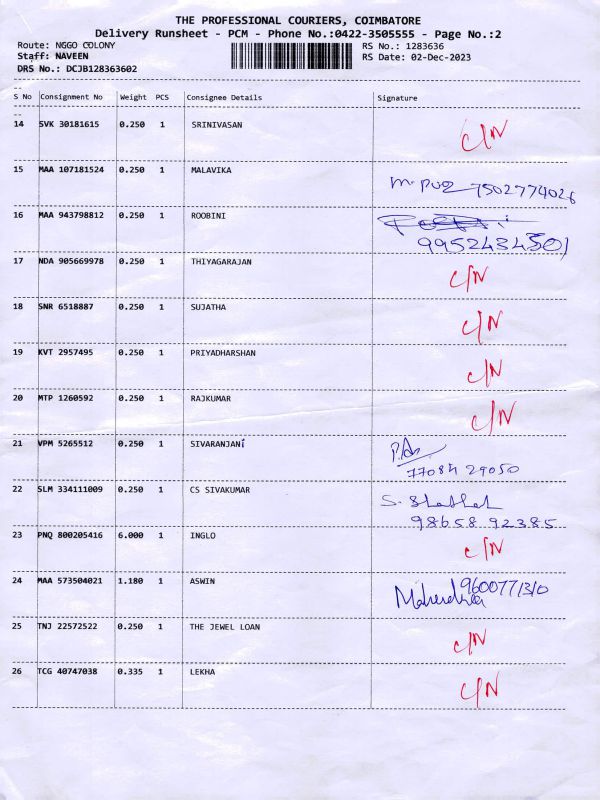 THE PROFESSIONAL COURIERS, COIMBATORE
Delivery Runsheet - PCM - Phone No.:0422-3505555 - Page No.:2
Route: NGGO COLONY RS No.: 1283636
Staff: NAVEEN RS Date: 02-Dec-2023
DRS No.: DCJB128363602
S No Consignment No Weight PCS Consignee Details Signature
14 SVK 30181615 0.250 1 SRINIVASAN C/N
15 MAA 107181524 0.250 1 MALAVIKA 7502774026
16 MAA 943798812 0.250 1 ROOBINI
9952434501
17 NDA 905669978 0.250 1 THIYAGARAJAN C/N
18 SNR 6518887 0.250 1 SUJATHA C/N
19 KVT 2957495 0.250 1 PRIYADHARSHAN C/N
20 MTP 1260592 0.250 1 RAJKUMAR C/N
21 VPM 5265512 0.250 1 SIVARANJANi
77084 29050
22 SLM 334111009 0.250 1 CS SIVAKUMAR
98658 92385
23 PNQ 800205416 6.000 1 INGLO C/N
24 MAA 573504021 1.180 1 ASWIN
25 TNJ 22572522 0.250 1 THE JEWEL LOAN C/N
26 TCG 40747038 0.335 1 LEKHA C/N